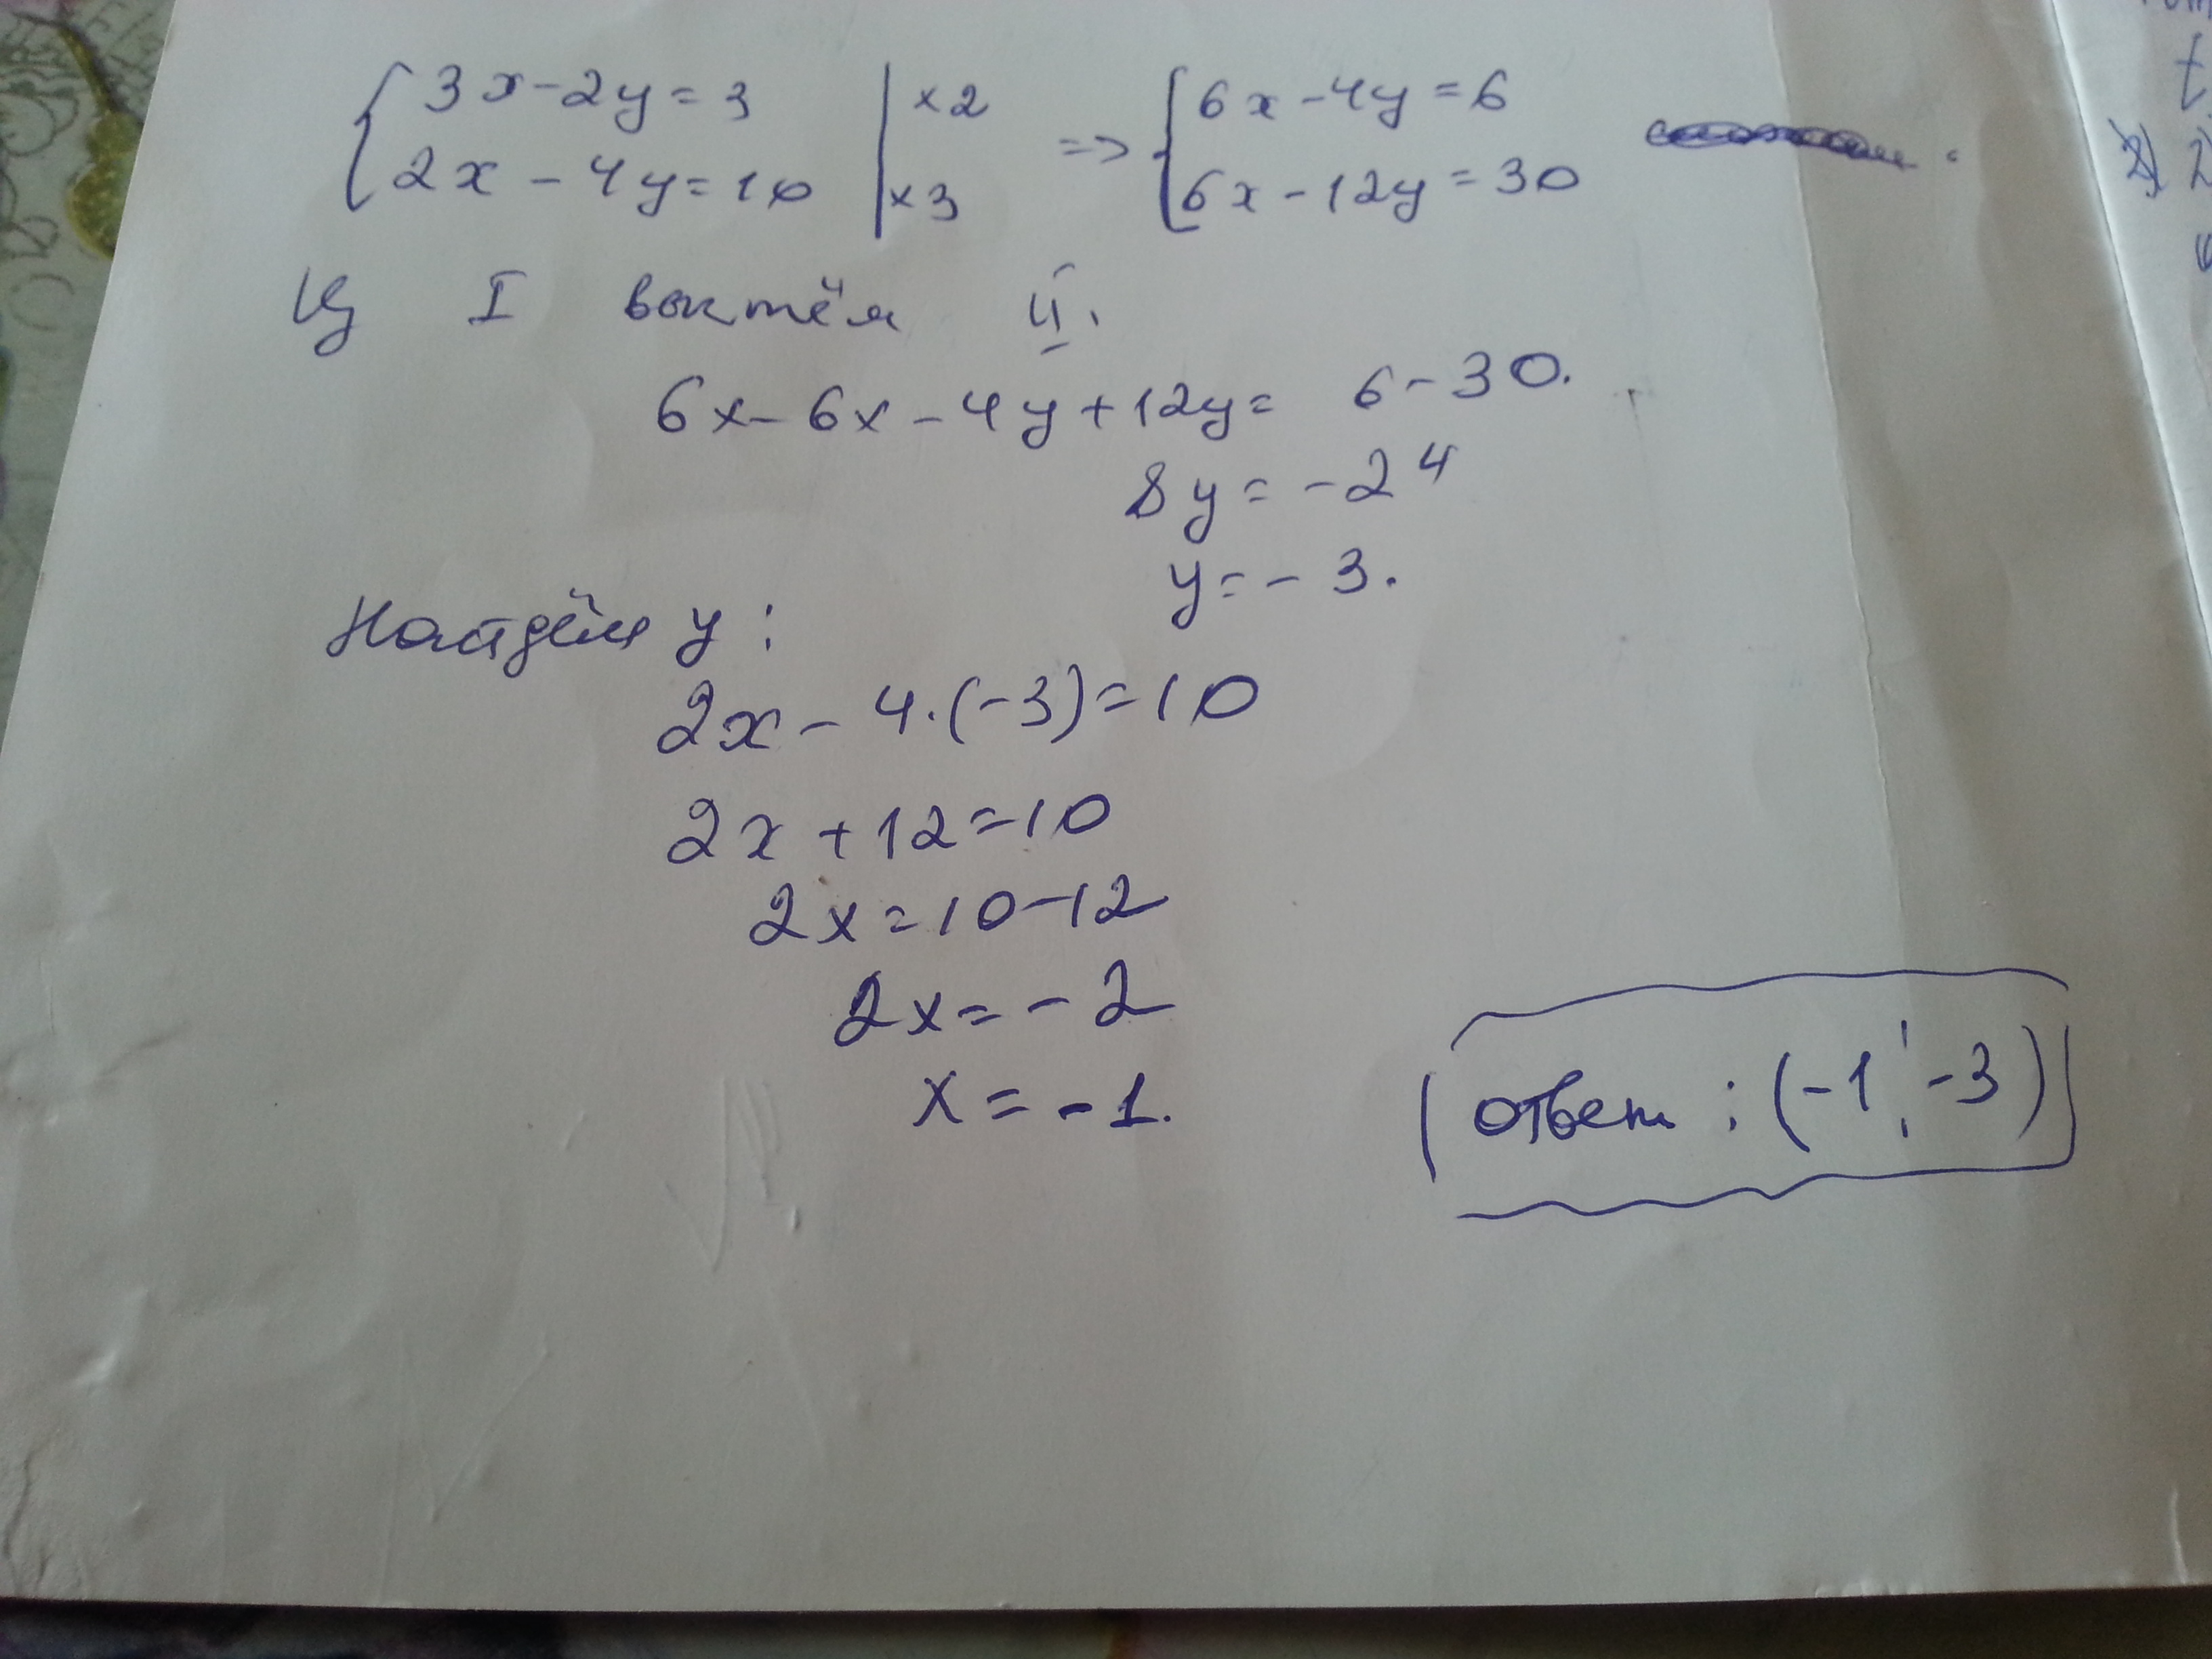 { 3x-2y=3 | ×2 => { 6x-4y=6
2x-4y=10 | ×3 6x-12y=30
Из I вычтем II.
6x-6x-4y+12y= 6-30.
8y=-24
y=-3.
Найдём y:
2x-4·(-3)=10
2x+12=10
2x=10-12
2x=-2
x=-1.
ответ: (-1;-3)